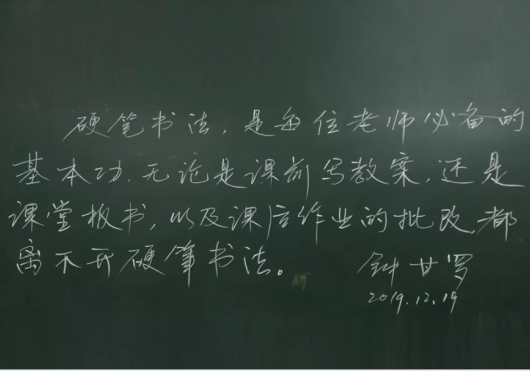 硬笔书法，是每位老师必备的
基本功，无论是课前写教案，还是
课堂板书，以及课后作业的批改，都
离不开硬笔书法。
钟甘罗
2019.12.19